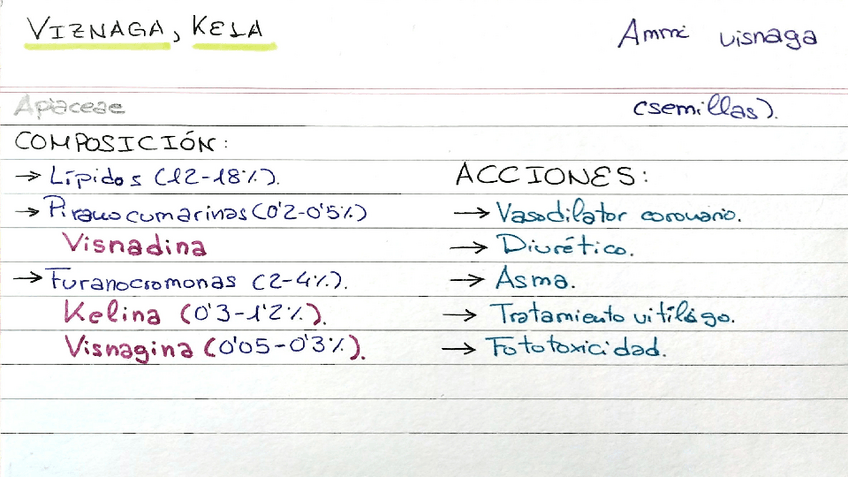 VIZNAGA, KELA
Ammi visnaga
(semillas).
Apiaceae
COMPOSICIÓN:
→ Lípidos (12-18%).
→ Piranocumarinas (0'2-0'5%)
Visnadina
→ Furanocromonas (2-4%).
Kelina (0'3-1'2%).
Visnagina (0'05-0'3%).
ACCIONES:
→ Vasodilator coronario.
→ Diurético.
→ Asma.
→ Tratamiento vitílògo.
→ Fototoxicidad.